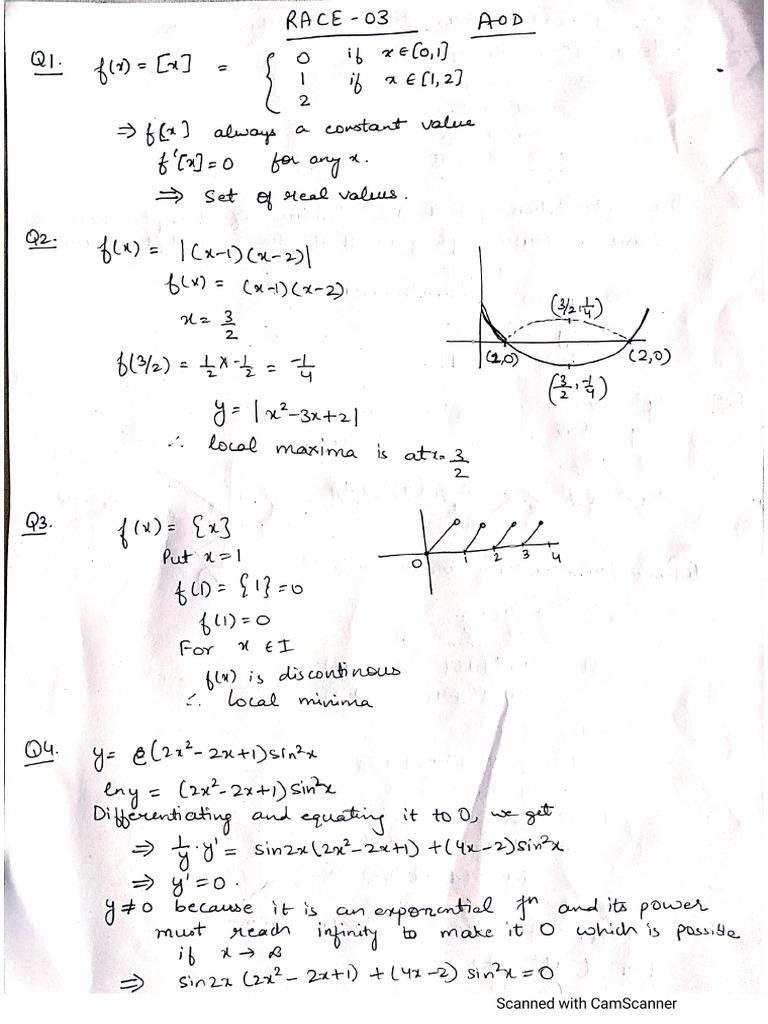 RACE-03 AOD
Q1. f(x) = [x] = { 0 if x∈[0,1]
1 if x∈[1,2]
2
⇒ f[x] always a constant value
f'[x]=0 for any x.
⇒ Set of real values.
Q2. f(x) = |(x-1)(x-2)|
f(x) = (x-1)(x-2)
x = 3/2
f(3/2) = 1/2 x -1/2 = -1/4
y = |x²-3x+2|
∴ local maxima is at x = 3/2
(3/2, 1/4)
(1,0) (2,0)
(3/2, -1/4)
Q3. f(x) = {x}
Put x=1
f(1) = {1} = 0
f(1) = 0
For x ∈ I
f(x) is discontinous
∴ local minima
0 1 2 3 4
Q4. y = e(2x²-2x+1)sin²x
ln y = (2x²-2x+1)sin²x
Differentiating and equating it to 0, we get
⇒ 1/y · y' = sin2x(2x²-2x+1) + (4x-2)sin²x
⇒ y' = 0.
y ≠ 0 because it is an exponential fn and its power
must reach infinity to make it 0 which is possible
if x → ∞
⇒ sin2x (2x²-2x+1) + (4x-2) sin²x = 0
Scanned with CamScanner